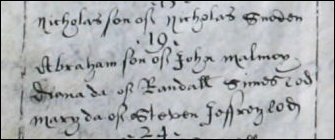 Nicholas son of Nicholas Snoden
19
Abraham son of John Malmoy
Diana da of Randall Simes
Mary da of Steven Jeffrey
24